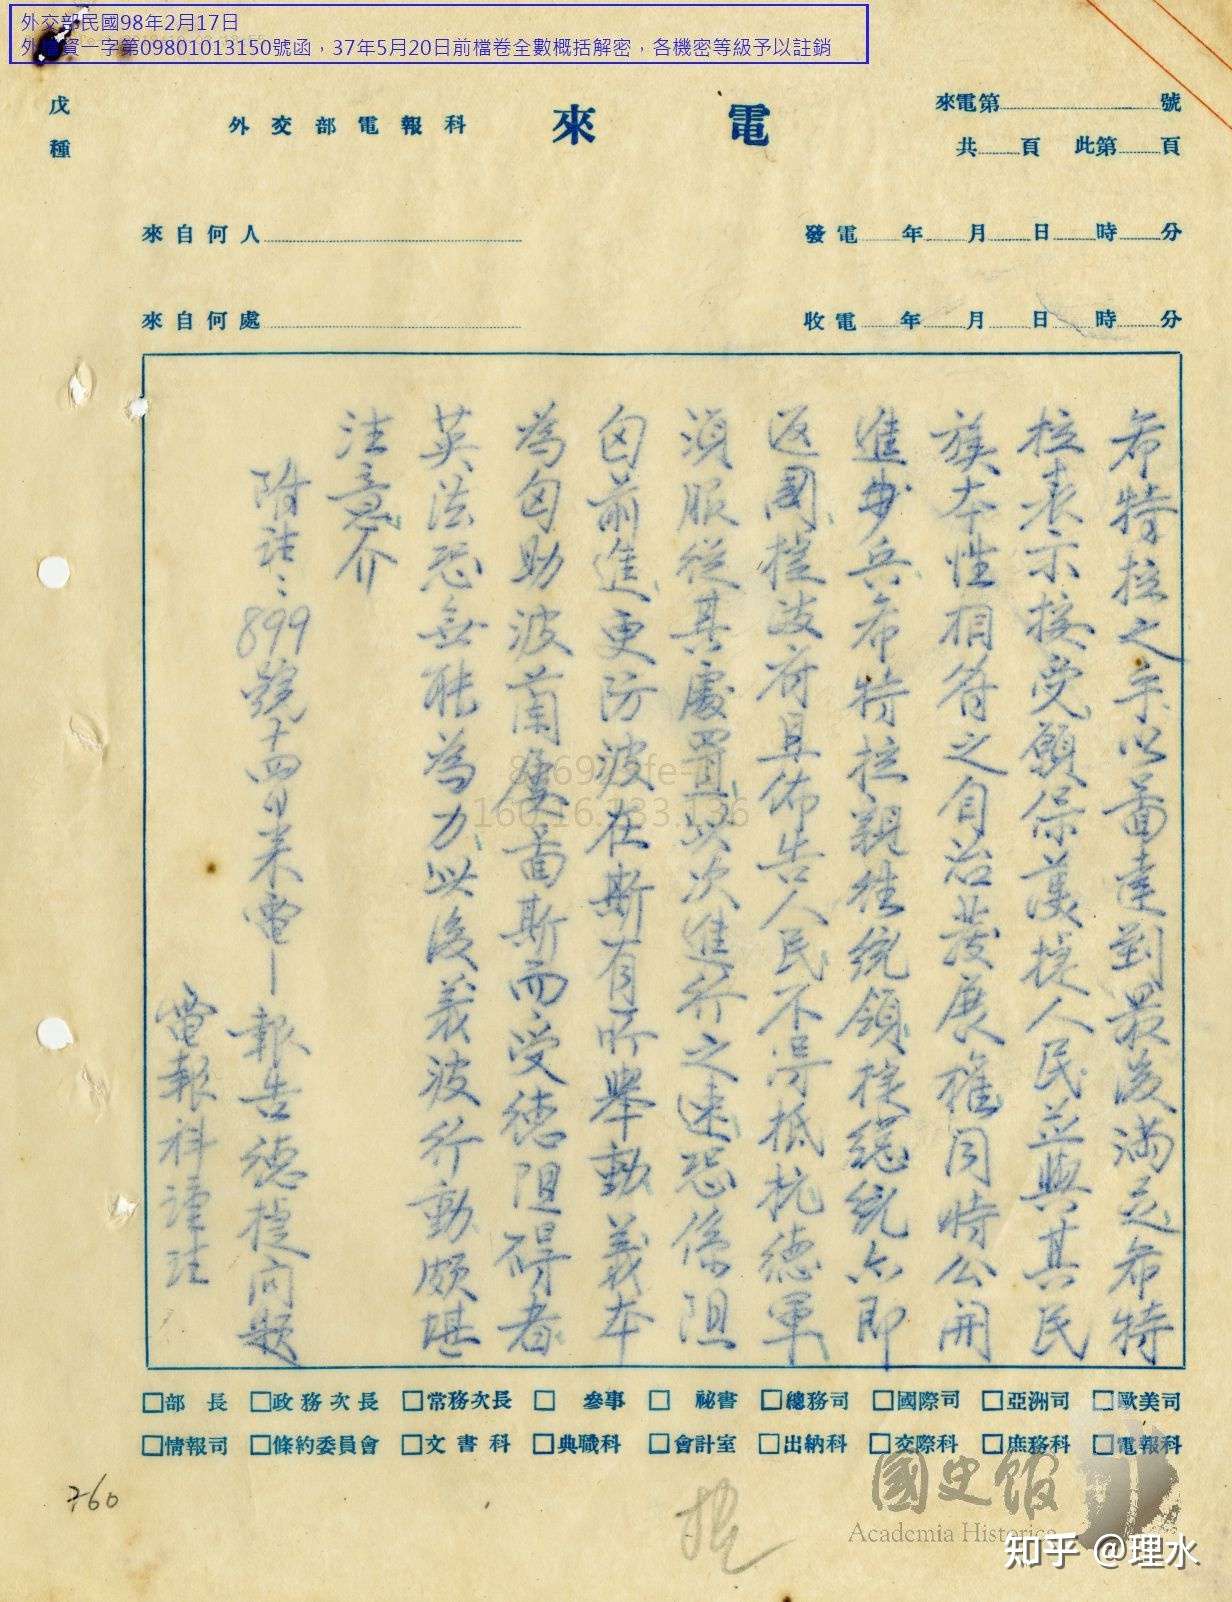 外交部民國98年2月17日
外(09801013150)資一字第09801013150號函，37年5月20日前檔卷全數概括解密，各機密等級予以註銷
戊種
外交部電報科
來電
來電第 號
共 頁 此第 頁
來自何人
發電 年 月 日 時 分
來自何處
收電 年 月 日 時 分
希特拉之手以圖達到最後滿足希特
拉表示接受願保護捷人民並與其民
族本性相符之自治發展權同時公開
進步兵希特拉親往統領捷總統亦即
返國捷政府且佈告人民不得抵抗德軍
須服從其處置此次進行之速恐係阻
匈前進更防波在斯有所舉動義本
為匈助波蘭屢圖斯而受德阻碍者
英法恐無能為力此後義波行動頗堪
注意介
附註：899號十四日來電—報告德捷問題
電報科謹註
□部長 □政務次長 □常務次長 □參事 □祕書 □總務司 □國際司 □亞洲司 □歐美司
□情報司 □條約委員會 □文書科 □典職科 □會計室 □出納科 □交際科 □庶務科 □電報科
760
國史館
Academia Historica
知乎 @理水